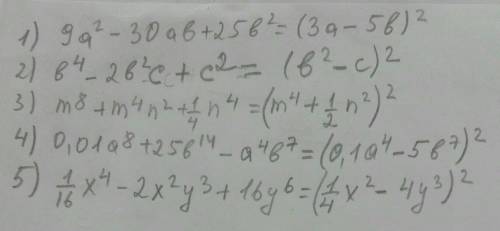 1) 9a² - 30ав + 25в² = (3а - 5в)²
2) в⁴ - 2в²с + с² = (в² - с)²
3) m⁸ + m⁴n² + 1/4 n⁴ = (m⁴ + 1/2 n²)²
4) 0,01а⁸ + 25в¹⁴ - а⁴в⁷ = (0,1а⁴ - 5в⁷)²
5) 1/16 x⁴ - 2x²y³ + 16y⁶ = (1/4 x² - 4y³)²